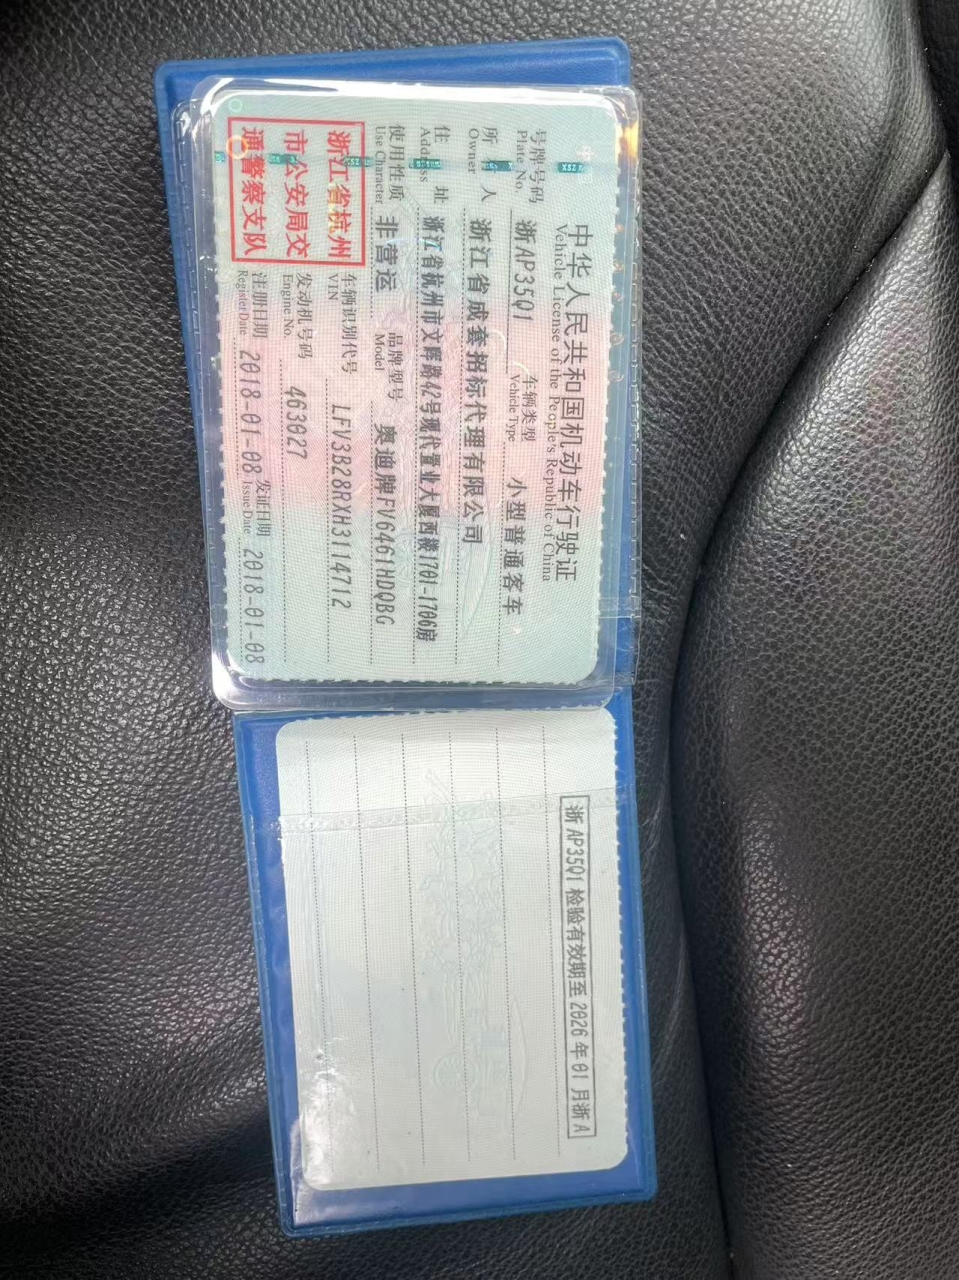 中华人民共和国机动车行驶证
Vehicle License of the People's Republic of China
号牌号码 浙AP35Q1 车辆类型 小型普通客车
Plate No. Vehicle Type
所有人 浙江省成套招标代理有限公司
Owner
住址 浙江省杭州市文晖路42号现代置业大厦西楼1701-1706房
Address
使用性质 非营运 品牌型号 奥迪牌FV6461HDQBG
Use Character Model
浙江省杭州
市公安局交
通警察支队
车辆识别代号 LFV3B28RXH3114712
VIN
发动机号码 463027
Engine No.
注册日期 2018-01-08 发证日期 2018-01-08
Register Date Issue Date
浙AP35Q1 检验有效期至 2026 年 01 月浙A